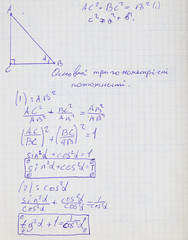 AC² + BC² = AB² (:)
c² = a² + b².
A
C
B
Основні тригонометричні
тотожності.
(1) : AB²
AC²/AB² + BC²/AB² = AB²/AB²
sin²α + cos²α = 1
sin²α + cos²α = 1
(2) : cos²α
sin²α/cos²α + cos²α/cos²α = 1/cos²α
tg²α + 1 = 1/cos²α